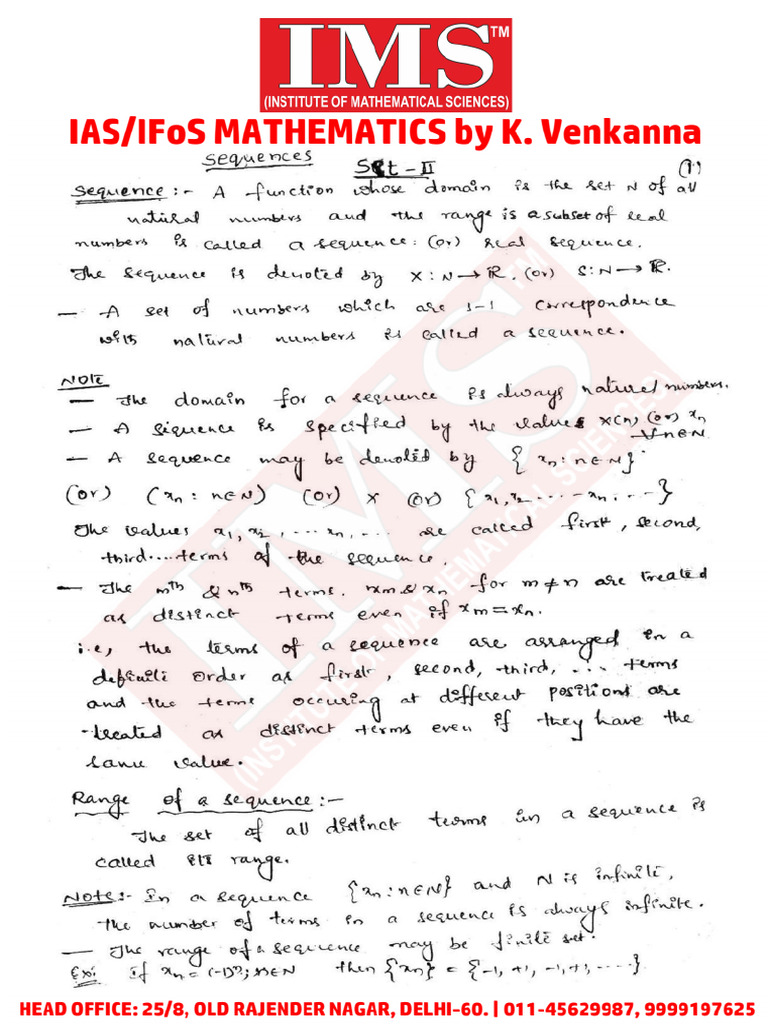 IMS™
(INSTITUTE OF MATHEMATICAL SCIENCES)
IAS/IFoS MATHEMATICS by K. Venkanna
Sequences
Set-II
(1)
Sequence:- A function whose domain is the set N of all
natural numbers and the range is a subset of real
numbers is called a sequence. (or) real sequence.
The sequence is denoted by X: N→ℝ. (or) S: N→ℝ.
— A set of numbers which are 1-1 correspondence
with natural numbers is called a sequence.
NOTE
— The domain for a sequence is always natural numbers.
— A sequence is specified by the values x(n) (or) xₙ
∀n∈N
— A sequence may be denoted by {xₙ: n∈N}
(or) (xₙ : n∈N) (or) X (or) {x₁, x₂ .... - xₙ, ...}
The values x₁, x₂, .... xₙ, ... are called first, second,
third.... terms of the sequence.
— The mᵗʰ & nᵗʰ terms. xₘ & xₙ for m≠n are treated
as distinct terms even if xₘ = xₙ.
i.e, the terms of a sequence are arranged in a
definite order as first, second, third, ... terms
and the terms occuring at different positions are
treated as distinct terms even if they have the
same value.
Range of a sequence:-
The set of all distinct terms in a sequence is
called its range.
Note:- In a sequence {xₙ: n∈N} and N is infinite,
the number of terms in a sequence is always infinite.
— The range of a sequence may be finite set.
Ex: if xₙ = (-1)ⁿ; n∈N then {xₙ} = {-1, +1, -1, +1, .....}
HEAD OFFICE: 25/8, OLD RAJENDER NAGAR, DELHI-60. | 011-45629987, 9999197625
IMS™
(INSTITUTE OF MATHEMATICAL SCIENCES)